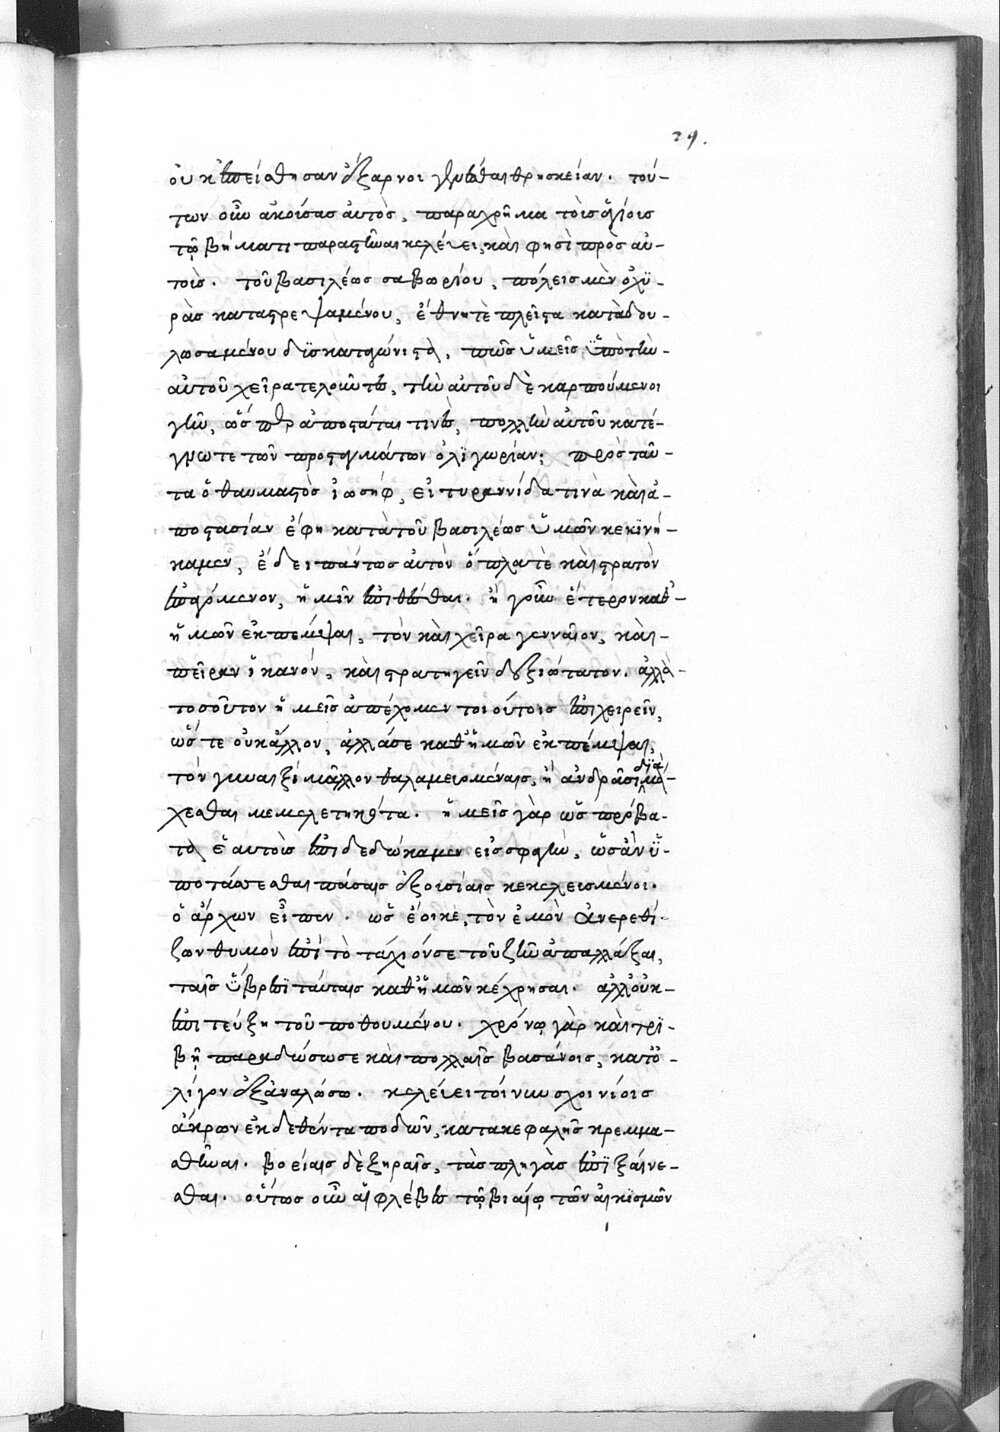 29.
οὐκ ἐπείσθησαν ἔξαρνοι γενέσθαι θρησκείαν. τού-
των οὖν ἀκούσας αὐτὸς, παραχρῆμα τοῖς ἁγίοις
τῷ βήματι παραστῆναι κελεύει, καὶ φησὶ πρὸς αὐ-
τοὺς. τοῦ βασιλέως σαβωρίου, πόλεις μὲν ὀχυ-
ρὰς καταστρεψαμένου, ἔθνη τὲ πλεῖστα καταδου-
λωσαμένου δυσκαταγώνιστα, πῶς ὑμεῖς ὑπὸ τὴν
αὐτοῦ χεῖρα τελοῦντες, τὴν αὐτοῦ δὲ καρπούμενοι
γῆν, ὥσπερ ἀποστάται τινὲς, πολλὴν αὐτοῦ κατέ-
γνωτε τῶν προσταγμάτων ὀλιγωρίαν; πρὸς ταῦ-
τα ὁ θαυμαστὸς ἰωσὴφ, εἰ τυραννίδα τινὰ καὶ ἀ-
ποστασίαν ἔφη κατὰ τοῦ βασιλέως ὑμῶν κεκινή-
καμεν, ἔδει πάντως αὐτὸν ὅπλα τὲ καὶ στρατὸν
ἐπαγόμενον, ἡμῖν ἐπιθέσθαι. ἢ γοῦν ἕτερον καθ'
ἡμῶν ἐκπέμψαι, τὸν καὶ χεῖρα γενναῖον, καὶ
πεῖραν ἱκανόν, καὶ στρατηγεῖν δεξιώτατον. ἀλλὰ
τοσοῦτον ἡμεῖς ἀπέχομεν τοιούτοις ἐπιχειρεῖν,
ὥστε οὐκ ἄλλον, ἀλλά σε καθ' ἡμῶν ἐκπέμψαι,
τὸν γυναιξὶ μᾶλλον θαλαμευομέναις, ἢ ἀνδράσι διαμά-
χεσθαι μεμελετηκότα. ἡμεῖς γὰρ ὡς πρόβα-
τα ἑαυτοὺς ἐπιδεδώκαμεν εἰς σφαγὴν, ὡς ἂν ὑ-
ποτάσσεσθαι πάσαις ἐξουσίαις κεκελευσμένοι.
ὁ ἄρχων εἶπεν. ὡς ἔοικε, τὸν ἐμὸν ἀνερεθί-
ζων θυμὸν ἐπὶ τὸ τάχιόν σε τοῦ ζῆν ἀπαλλάξαι,
ταῖς ὕβρεσι ταύταις καθ' ἡμῶν κέχρησαι. ἀλλ' οὐκ
ἐπιτεύξῃ τοῦ ποθουμένου. χρόνῳ γὰρ καὶ τρι-
βῇ παραδώσω σε καὶ πολλαῖς βασάνοις, κατ' ὀ-
λίγον ἐξαναλώσω. κελεύει τοίνυν σχοινίοις
ἄκρων ἐκδεθέντα ποδῶν, κατὰ κεφαλῆς κρεμμα-
σθῆναι. βοείαις δὲ ξηραῖς, τὰς πληγὰς ἐπιξαίνε-
σθαι. οὕτως οὖν αἱ φλέβες τῷ βιαίῳ τῶν αἰκισμῶν